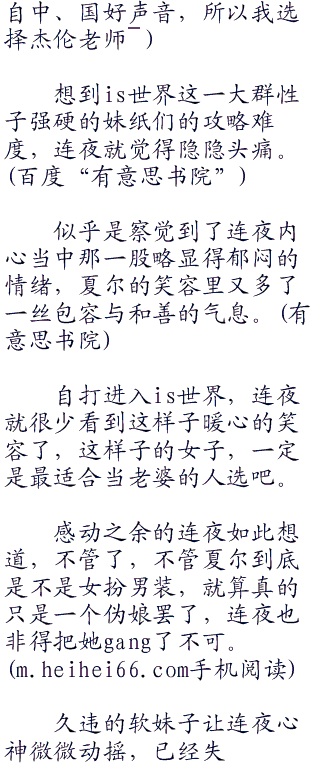 自中、国好声音，所以我选
择杰伦老师¯）
想到is世界这一大群性
子强硬的妹纸们的攻略难
度，连夜就觉得隐隐头痛。
(百度“有意思书院”)
似乎是察觉到了连夜内
心当中那一股略显得郁闷的
情绪，夏尔的笑容里又多了
一丝包容与和善的气息。(有
意思书院)
自打进入is世界，连夜
就很少看到这样子暖心的笑
容了，这样子的女子，一定
是最适合当老婆的人选吧。
感动之余的连夜如此想
道，不管了，不管夏尔到底
是不是女扮男装，就算真的
只是一个伪娘罢了，连夜也
非得把她gang了不可。
(m.heihei66.com手机阅读)
久违的软妹子让连夜心
神微微动摇，已经失